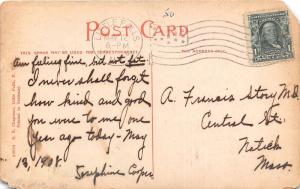 50
POST CARD
6-PM
THIS SPACE MAY BE USED FOR CORRESPONDENCE.
THE ADDRESS ONLY.
Am feeling fine, but not fat.
I never shall forget
how kind and good
you were to me one
year ago today - May
13, 1908.
Josephine Cooper
A. Francis Story M.D.
Central St.
Natick
Mass.